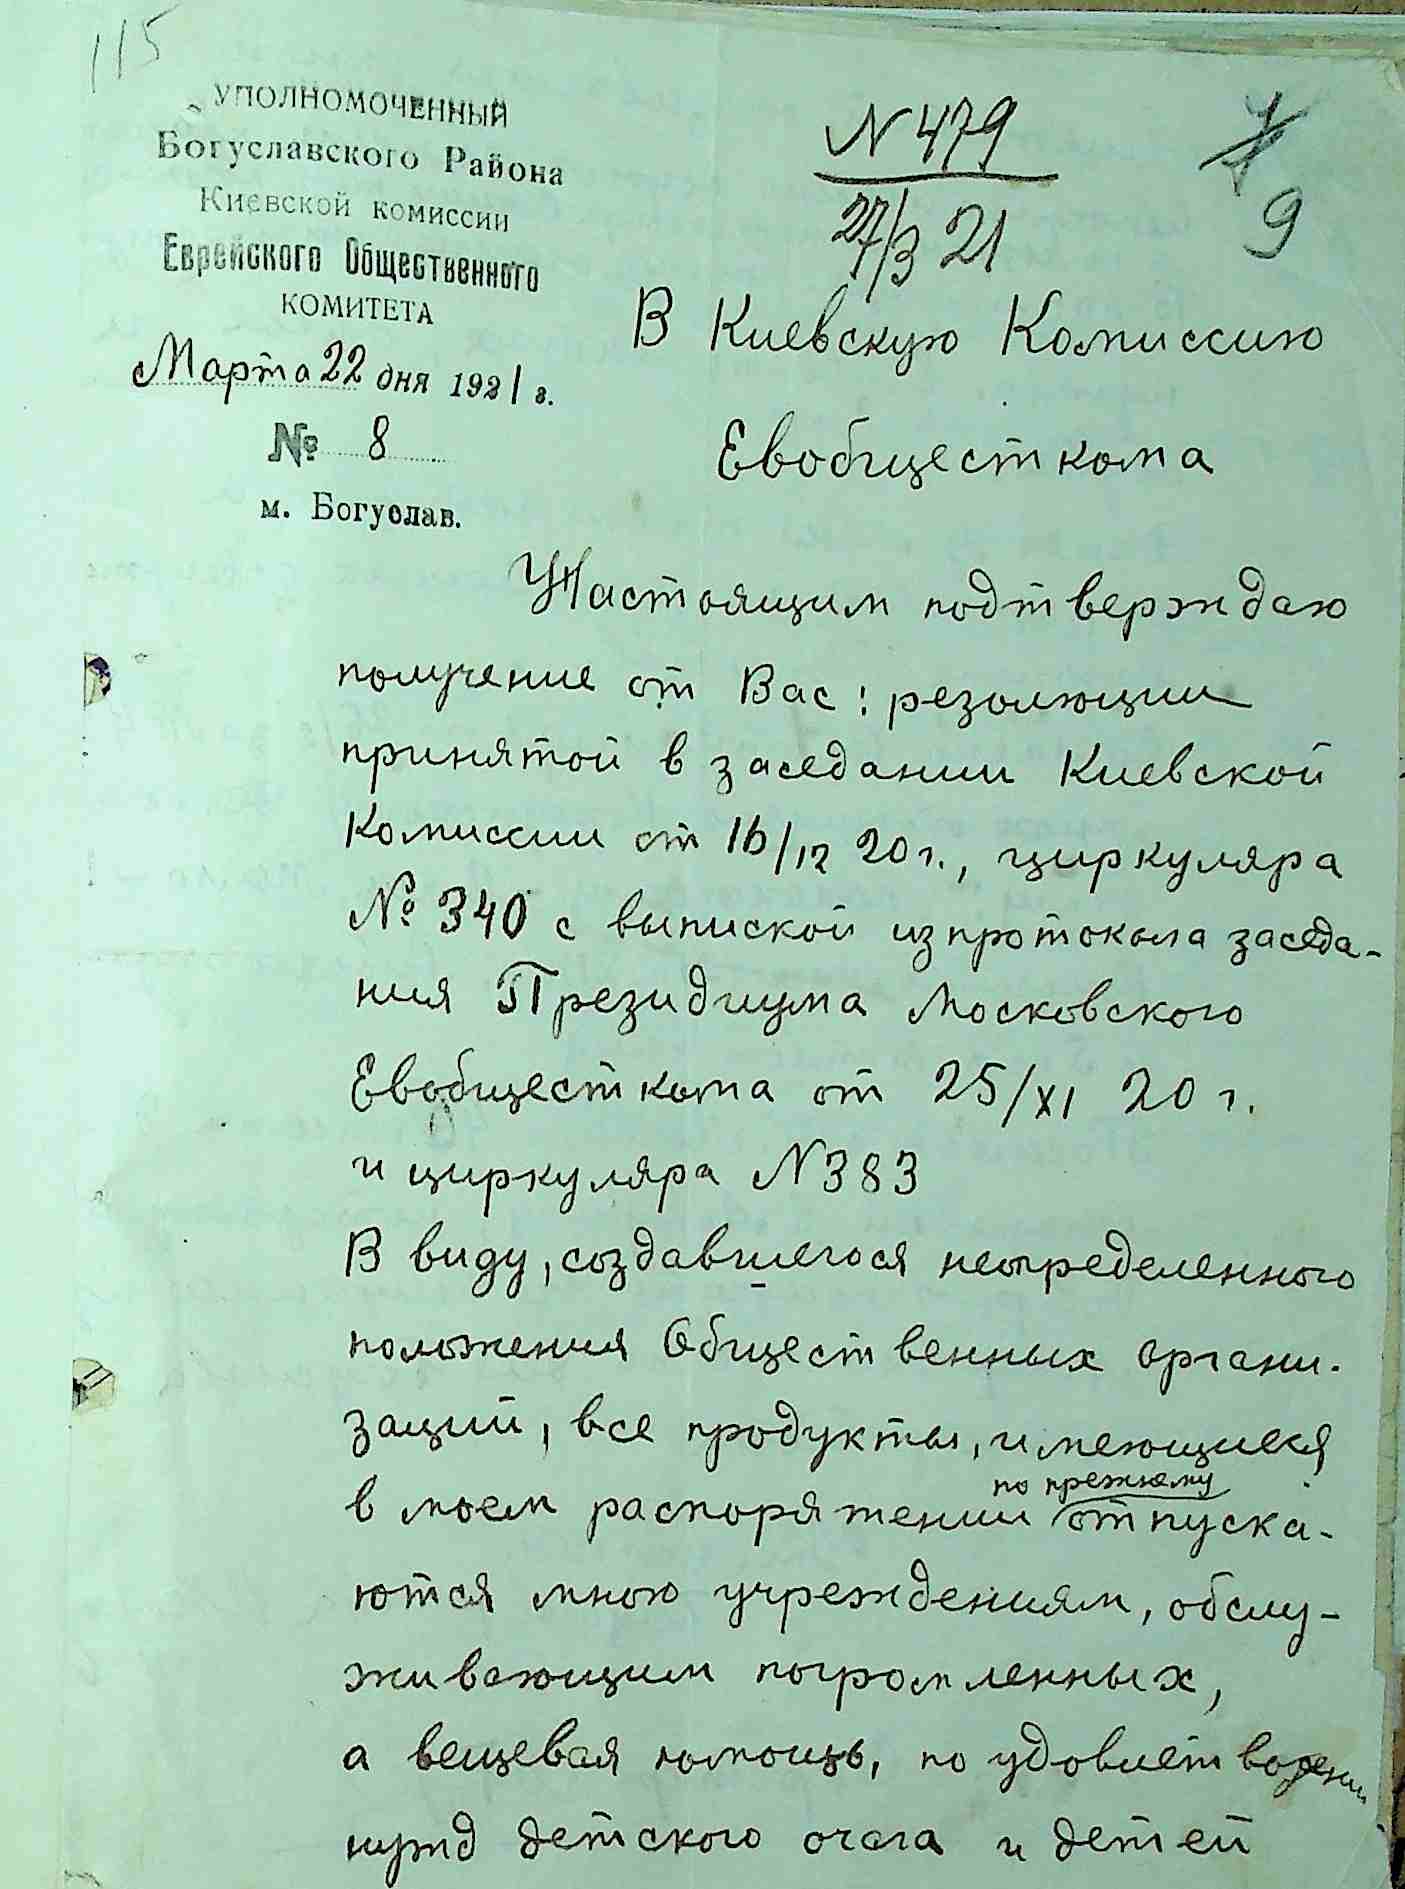 115
УПОЛНОМОЧЕННЫЙ
Богуславского Района
Киевской комиссии
Еврейского Общественного
КОМИТЕТА
Марта 22 дня 1921 г.
№ 8
м. Богуслав.
N 479
27/3 21
9
В Киевскую Комиссию
Евобщесткома
Настоящим подтверждаю
получение от Вас: резолюции
принятой в заседании Киевской
Комиссии от 16/12 20 г., циркуляра
№ 340 с выпиской из протокола заседа-
ния Президиума Московского
Евобщесткома от 25/XI 20 г.
и циркуляра N 383
В виду, создавшегося неопределенного
положения Общественных органи-
заций, все продукты, имеющиеся
по прежнему
в моем распоряжении отпуска-
ются мною учреждениям, обслу-
живающим погромленных,
а вещевая помощь, по удовлетворении
нужд детского очага и детей